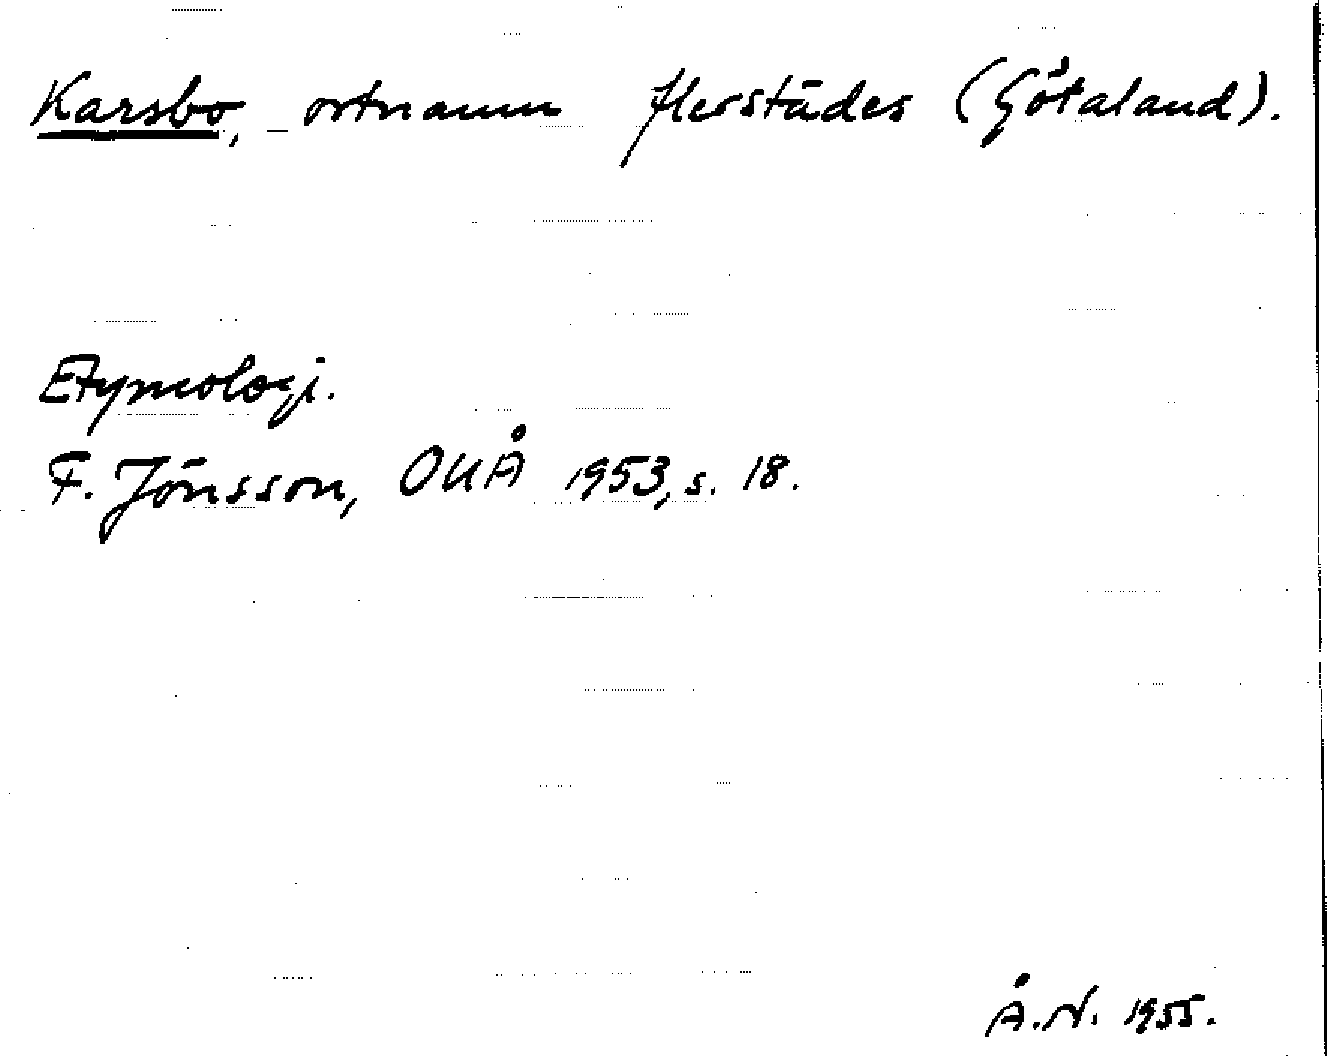 Karsbo, _ ortnamn flerstädes (Götaland).
Etymologi.
F. Jönsson, OUÅ 1953, s. 18.
Å.N. 1955.